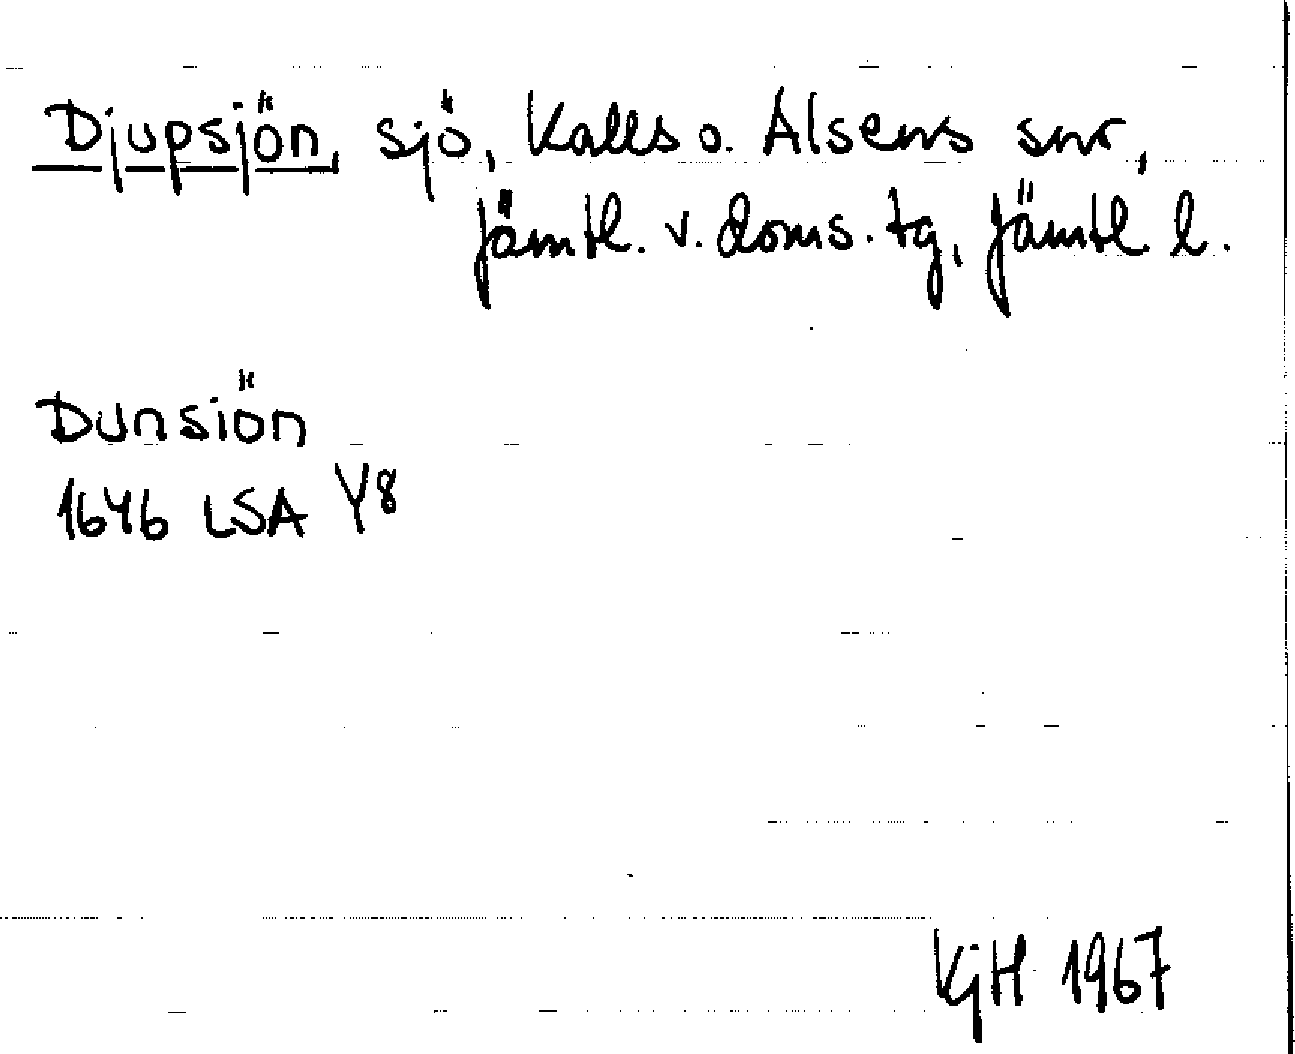 Djupsjön, sjö, Kalls o. Alsens snr,
Jämtl. v. doms. tg, Jämtl. l.
Dunsiön
1646 LSA Y8
KjH 1967